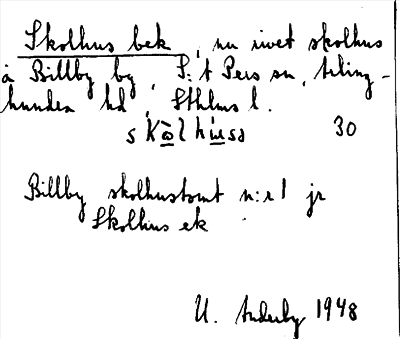 Skolhus bek, nu rivet skolhus
å Billby by, S:t Pers sn, Ærling-
hundra hd, Sthlms l.
skòlhùsə 30
Billby skolhustomt n:r 1 jr
Skolhus ek
U. Anderby 1948